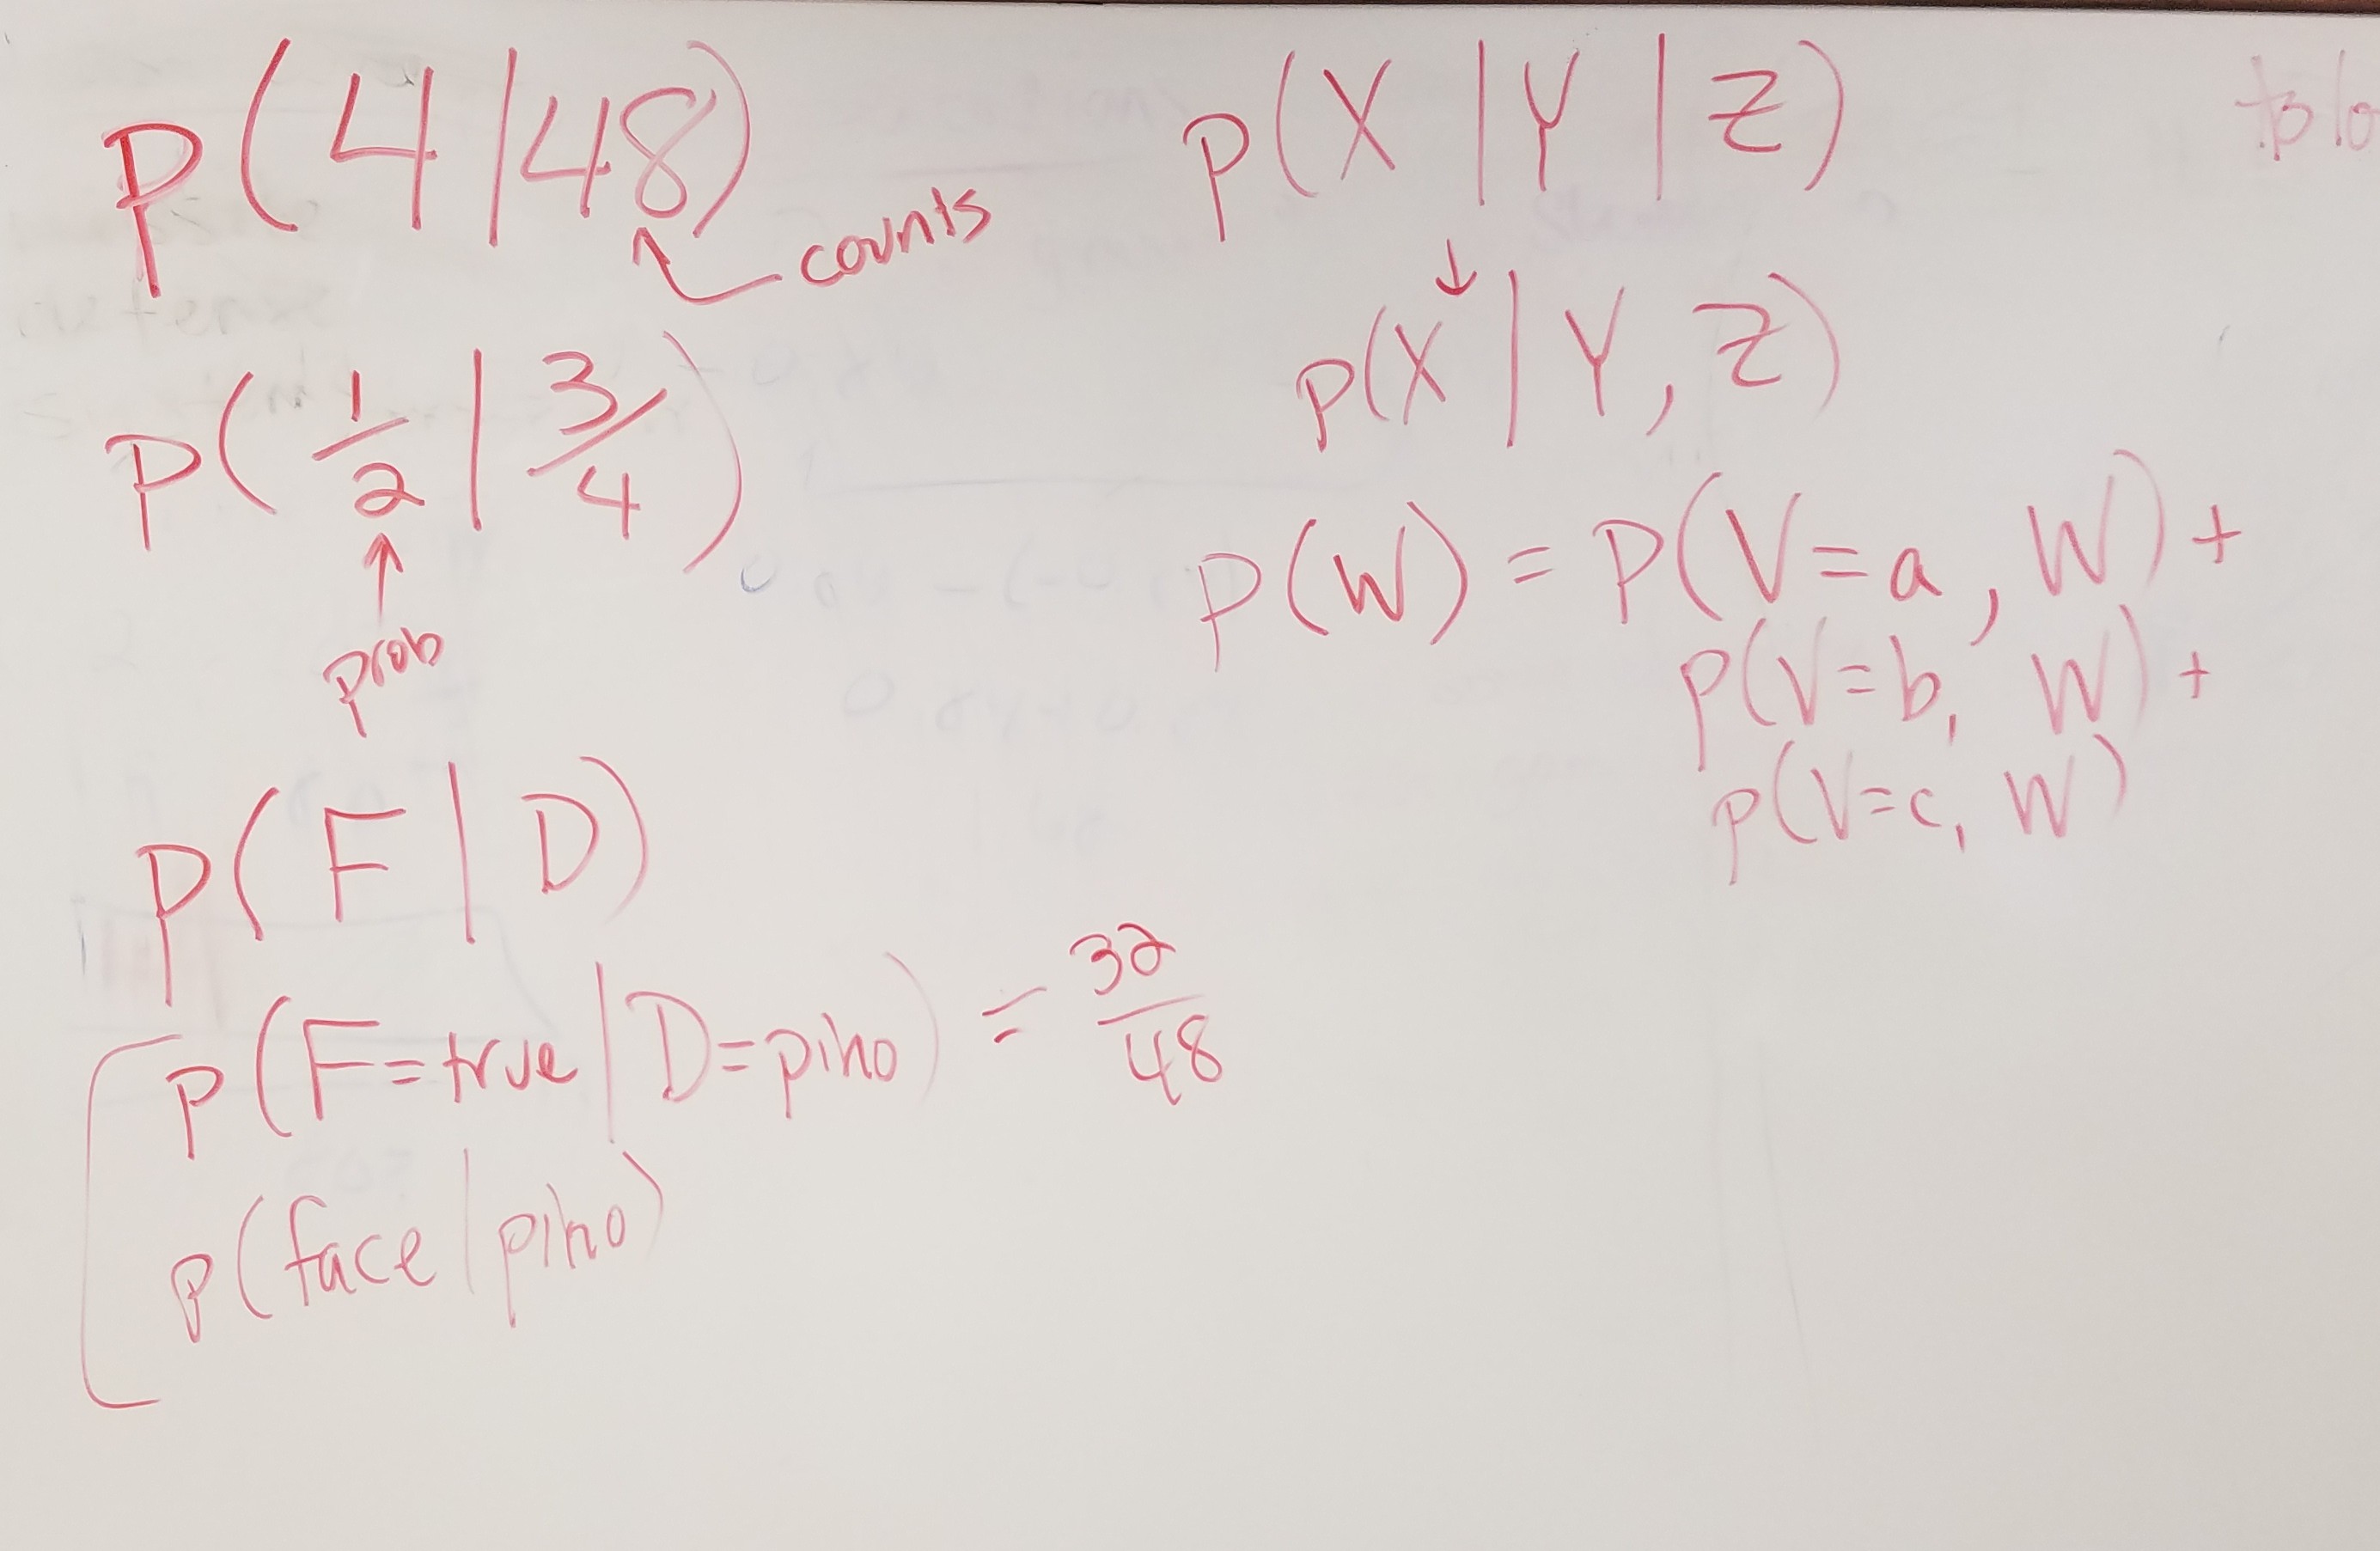 P(4|48)
counts
P(1/2 | 3/4)
prob
P(F|D)
P(F=true|D=pino) = 32/48
P(face|pino)
P(X|Y|Z)
↓
P(X|Y,Z)
P(W) = P(V=a, W) +
P(V=b, W) +
P(V=c, W)